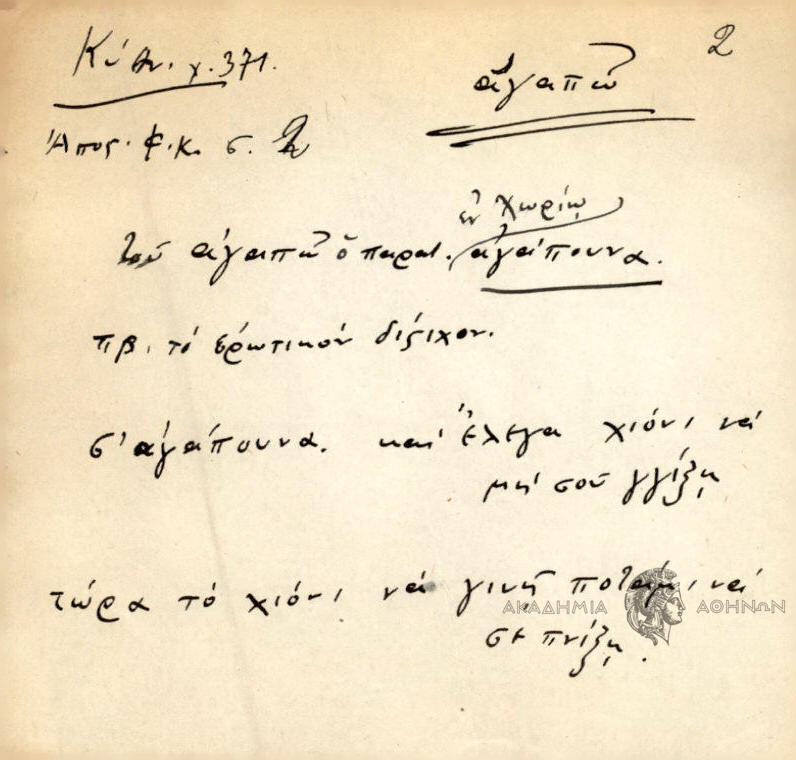 2
Κύθν. χ. 371.
ἀγαπῶ
Ἀποσ. Φ.Κ. σ. 2
ἐν Χωρίῳ
τοῦ ἀγαπῶ ὁ παρατ. ἀγάπουνα.
πβ. τό ἐρωτικόν δίστιχον.
σ' ἀγάπουνα. καί ἔλεγα χιόνι νά
μή σοῦ γγίξῃ
τώρα τό χιόνι νά γινῇ ποτάμι, νά
σέ πνίξῃ.
ΑΚΑΔΗΜΙΑ ΑΘΗΝΩΝ